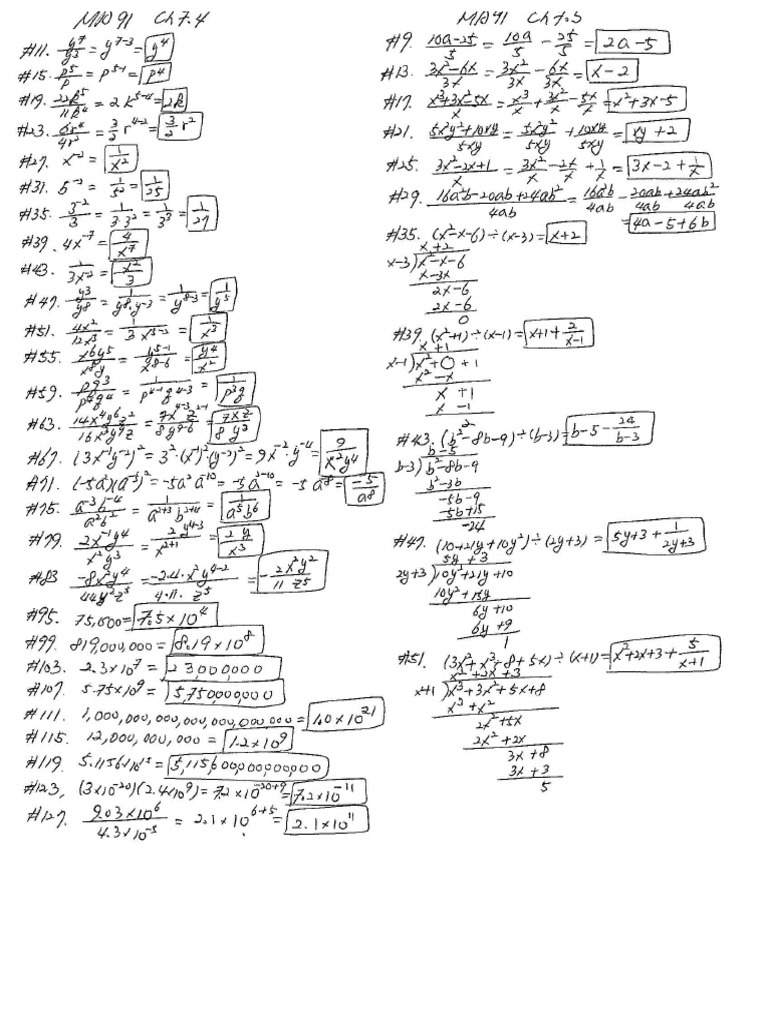 MA091 Ch 7.4
#11. y⁷/y³ = y⁷⁻³ = y⁴
#15. p⁵/p = p⁵⁻¹ = p⁴
#19. 22k⁵/11k⁴ = 2k⁵⁻⁴ = 2k
#23. 6r⁴/4r² = 3/2 r⁴⁻² = 3/2 r²
#27. x⁻² = 1/x²
#31. 5⁻² = 1/5² = 1/25
#35. 3⁻²/3 = 1/3·3² = 1/3³ = 1/27
#39. 4x⁻⁷ = 4/x⁷
#43. 1/3x⁻² = x²/3
#47. y³/y⁸ = 1/y⁸·y⁻³ = 1/y⁸⁻³ = 1/y⁵
#51. 4x²/12x³ =
#55. x⁶y⁵/x⁸y = y⁵⁻¹/x⁸⁻⁶ = y⁴/x²
#59. pq³/p⁴q⁴ = 1/p⁴⁻¹q⁴⁻³ = 1/p³q
#63. = 7x⁴⁻³z²⁻¹/8y⁹⁻⁶ = 7xz/8y³
#67. (3x⁻¹y⁻²)² = 3²·(x⁻¹)²·(y⁻²)² = 9x⁻²·y⁻⁴ = 9/x²y⁴
#71. (-5a²)(a⁻⁵)² = -5a²a⁻¹⁰ = -5a²⁻¹⁰ = -5a⁻⁸ = -5/a⁸
#75. a⁻³b⁻⁴/a²b² = 1/a²⁺³b²⁺⁴ = 1/a⁵b⁶
#79. 2x⁻¹y⁴/x²y³ = 2y⁴⁻³/x²⁺¹ = 2y/x³
#83 -8x²y⁴/44y²z⁵ = -2·4·x²y⁴⁻²/4·11·z⁵ = -2x²y²/11z⁵
#95. 75,000 = 7.5×10⁴
#99. 819,000,000 = 8.19×10⁸
#103. 2.3×10⁷ = 23,000,000
#107. 5.75×10⁹ = 5,750,000,000
#111. 1,000,000,000,000,000,000,000 = 1.0×10²¹
#115. 12,000,000,000 = 1.2×10⁹
#119. = 5,115,600,000,000,000
#123. (3×10⁻²⁰)(2.4×10⁹) = 7.2×10⁻²⁰⁺⁹ = 7.2×10⁻¹¹
#127. 9.03×10⁶/4.3×10⁻⁵ = 2.1×10⁶⁺⁵ = 2.1×10¹¹
MA091 Ch 7.5
#9. 10a-25/5 = 10a/5 - 25/5 = 2a-5
#13. 3x²-6x/3x = 3x²/3x - 6x/3x = x-2
#17. x³+3x²-5x/x = x³/x + 3x²/x - 5x/x = x²+3x-5
#21. 5x²y²+10xy/5xy = 5x²y²/5xy + 10xy/5xy = xy+2
#25. 3x²-2x+1/x = 3x²/x - 2x/x + 1/x = 3x-2+1/x
#29. 16a²b-20ab+24ab²/4ab = 16a²b/4ab - 20ab/4ab + 24ab²/4ab
= 4a-5+6b
#35. (x²-x-6)÷(x-3) = x+2
x+2
x-3)x²-x-6
x-3x
2x-6
2x-6
0
#39. (x²+1)÷(x-1) = x+1+2/x-1
x+1
x-1)x²+0+1
x²-x
x+1
x-1
#43. (b²-8b-9)÷(b-3) = b-5-24/b-3
b-5
b-3)b²-8b-9
b²-3b
-5b-9
-5b+15
-24
#47. (10+21y+10y²)÷(2y+3) = 5y+3+1/2y+3
5y+3
2y+3)10y²+21y+10
10y²+15y
6y+10
6y+9
1
#51. (3x²+x³+8+5x)÷(x+1) = x²+2x+3+5/x+1
x²+2x+3
x+1)x³+3x²+5x+8
x³+x²
2x²+5x
2x²+2x
3x+8
3x+3
5